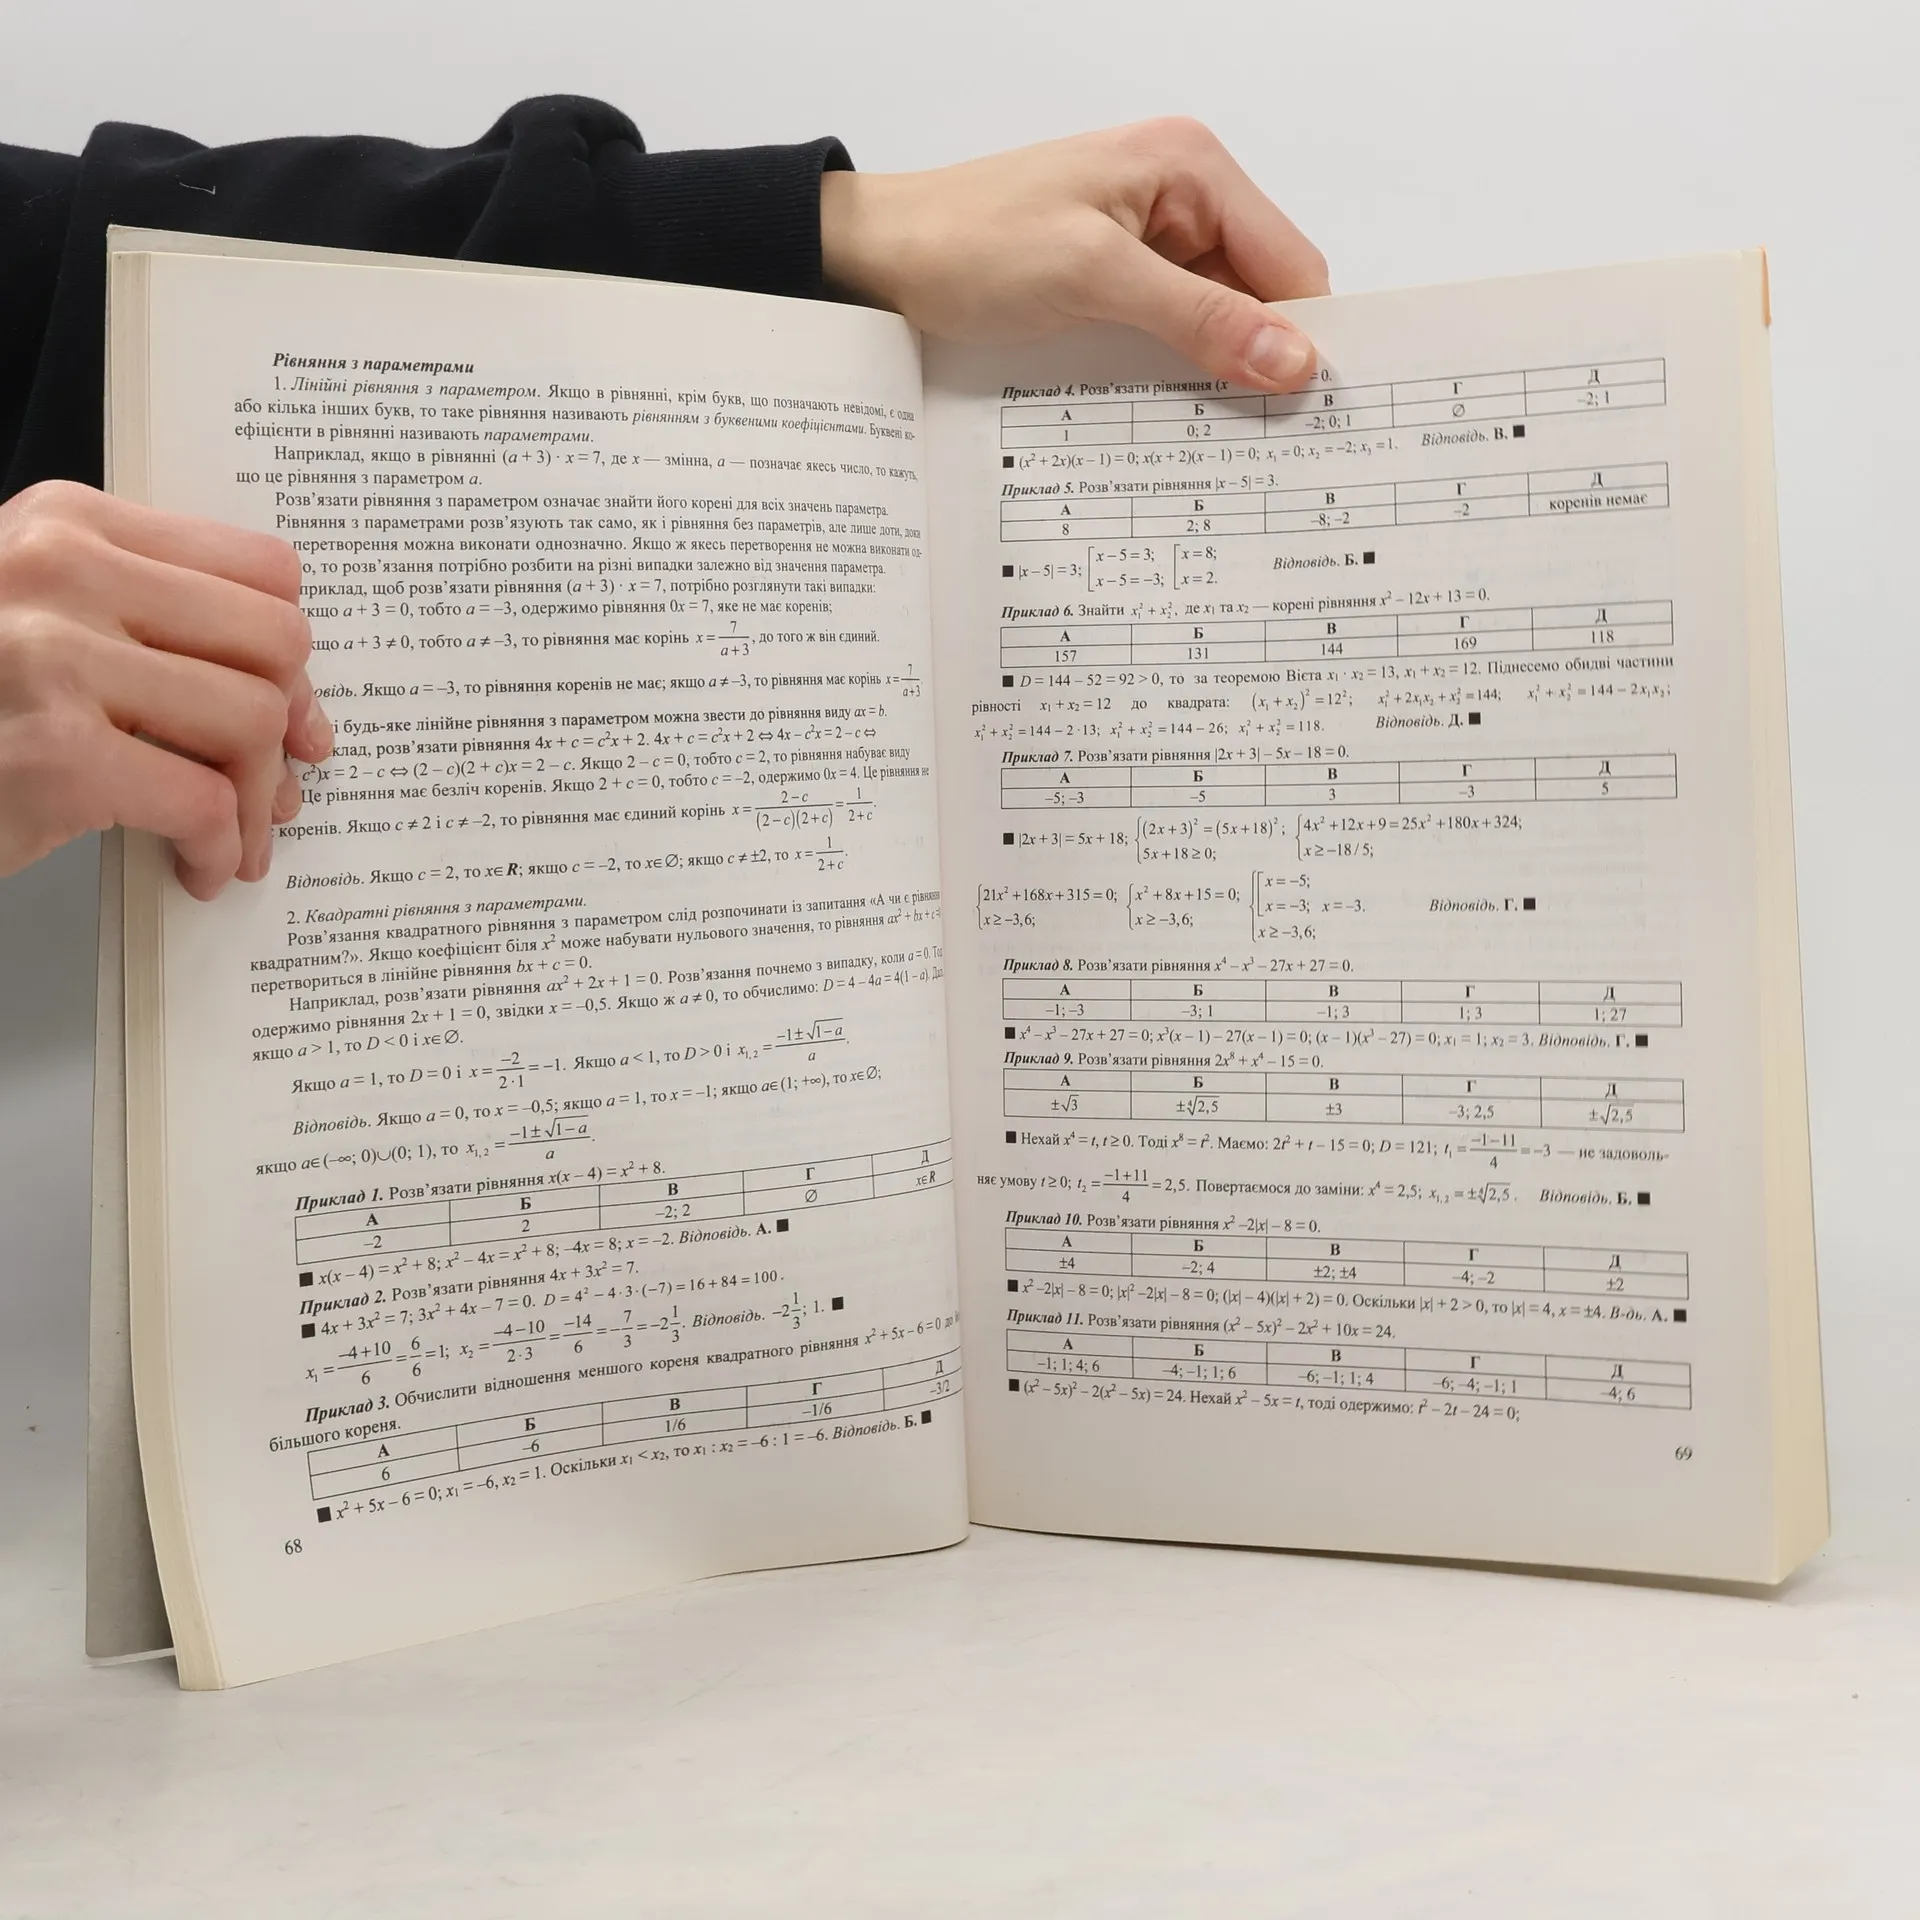 Рівняння з параметрами
1. Лінійні рівняння з параметром. Якщо в рівнянні, крім букв, що позначають невідомі, є одна
або кілька інших букв, то таке рівняння називають рівнянням з буквеними коефіцієнтами. Буквені ко-
ефіцієнти в рівнянні називають параметрами.
Наприклад, якщо в рівнянні (a + 3) · x = 7, де x — змінна, a — позначає якесь число, то кажуть,
що це рівняння з параметром a.
Розв’язати рівняння з параметром означає знайти його корені для всіх значень параметра.
Рівняння з параметрами розв’язують так само, як і рівняння без параметрів, але лише доти, доки
перетворення можна виконати однозначно. Якщо ж якесь перетворення не можна виконати од-
о, то розв’язання потрібно розбити на різні випадки залежно від значення параметра.
приклад, щоб розв’язати рівняння (a + 3) · x = 7, потрібно розглянути такі випадки:
кщо a + 3 = 0, тобто a = –3, одержимо рівняння 0x = 7, яке не має коренів;
кщо a + 3 ≠ 0, тобто a ≠ –3, то рівняння має корінь x = 7/(a+3), до того ж він єдиний.
овідь. Якщо a = –3, то рівняння коренів не має; якщо a ≠ –3, то рівняння має корінь x = 7/(a+3)
і будь-яке лінійне рівняння з параметром можна звести до рівняння виду ax = b.
клад, розв’язати рівняння 4x + c = c²x + 2. 4x + c = c²x + 2 ⇔ 4x – c²x = 2 – c ⇔
c²)x = 2 – c ⇔ (2 – c)(2 + c)x = 2 – c. Якщо 2 – c = 0, тобто c = 2, то рівняння набуває виду
Це рівняння має безліч коренів. Якщо 2 + c = 0, тобто c = –2, одержимо 0x = 4. Це рівняння не
коренів. Якщо c ≠ 2 і c ≠ –2, то рівняння має єдиний корінь x = (2–c)/((2–c)(2+c)) = 1/(2+c).
Відповідь. Якщо c = 2, то x∈R; якщо c = –2, то x∈∅; якщо c ≠ ±2, то x = 1/(2+c).
2. Квадратні рівняння з параметрами.
Розв’язання квадратного рівняння з параметром слід розпочинати із запитання «А чи є рівняння
квадратним?». Якщо коефіцієнт біля x² може набувати нульового значення, то рівняння ax² + bx + c =
перетвориться в лінійне рівняння bx + c = 0.
Наприклад, розв’язати рівняння ax² + 2x + 1 = 0. Розв’язання почнемо з випадку, коли a = 0.
одержимо рівняння 2x + 1 = 0, звідки x = –0,5. Якщо ж a ≠ 0, то обчислимо: D = 4 – 4a = 4(1 – a).
якщо a > 1, то D < 0 і x∈∅.
Якщо a = 1, то D = 0 і x = –2/(2·1) = –1. Якщо a < 1, то D > 0 і x₁,₂ = (–1±√(1–a))/a.
Відповідь. Якщо a = 0, то x = –0,5; якщо a = 1, то x = –1; якщо a∈(1; +∞), то x∈∅;
якщо a∈(–∞; 0)∪(0; 1), то x₁,₂ = (–1±√(1–a))/a.
Приклад 1. Розв’язати рівняння x(x – 4) = x² + 8.
А Б В Г Д
–2 2 –2; 2 ∅ x∈R
■ x(x – 4) = x² + 8; x² – 4x = x² + 8; –4x = 8; x = –2. Відповідь. А. ■
Приклад 2. Розв’язати рівняння 4x + 3x² = 7.
■ 4x + 3x² = 7; 3x² + 4x – 7 = 0. D = 4² – 4·3·(–7) = 16 + 84 = 100.
x₁ = (–4+10)/6 = 6/6 = 1; x₂ = (–4–10)/(2·3) = –14/6 = –7/3 = –2 1/3. Відповідь. –2 1/3; 1. ■
Приклад 3. Обчислити відношення меншого кореня квадратного рівняння x² + 5x – 6 = 0 до
більшого кореня.
А Б В Г Д
6 –6 1/6 –1/6 –3/2
■ x² + 5x – 6 = 0; x₁ = –6, x₂ = 1. Оскільки x₁ < x₂, то x₁ : x₂ = –6 : 1 = –6. Відповідь. Б. ■
68
Приклад 4. Розв’язати рівняння (x = 0.
А Б В Г Д
1 0; 2 –2; 0; 1 ∅ –2; 1
■ (x² + 2x)(x – 1) = 0; x(x + 2)(x – 1) = 0; x₁ = 0; x₂ = –2; x₃ = 1. Відповідь. В. ■
Приклад 5. Розв’язати рівняння |x – 5| = 3.
А Б В Г Д
8 2; 8 –8; –2 –2 коренів немає
■ |x – 5| = 3; [x – 5 = 3; [x = 8; Відповідь. Б. ■
x – 5 = –3; x = 2.
Приклад 6. Знайти x₁² + x₂², де x₁ та x₂ — корені рівняння x² – 12x + 13 = 0.
А Б В Г Д
157 131 144 169 118
■ D = 144 – 52 = 92 > 0, то за теоремою Вієта x₁ · x₂ = 13, x₁ + x₂ = 12. Піднесемо обидві частини
рівності x₁ + x₂ = 12 до квадрата: (x₁ + x₂)² = 12²; x₁² + 2x₁x₂ + x₂² = 144; x₁² + x₂² = 144 – 2x₁x₂;
x₁² + x₂² = 144 – 2·13; x₁² + x₂² = 144 – 26; x₁² + x₂² = 118. Відповідь. Д. ■
Приклад 7. Розв’язати рівняння |2x + 3| – 5x – 18 = 0.
А Б В Г Д
–5; –3 –5 3 –3 5
■ |2x + 3| = 5x + 18; {(2x + 3)² = (5x + 18)²; {4x² + 12x + 9 = 25x² + 180x + 324;
5x + 18 ≥ 0; x ≥ –18/5;
{21x² + 168x + 315 = 0; {x² + 8x + 15 = 0; {[x = –5;
x ≥ –3,6; x ≥ –3,6; x = –3; x = –3. Відповідь. Г. ■
x ≥ –3,6;
Приклад 8. Розв’язати рівняння x⁴ – x³ – 27x + 27 = 0.
А Б В Г Д
–1; –3 –3; 1 –1; 3 1; 3 1; 27
■ x⁴ – x³ – 27x + 27 = 0; x³(x – 1) – 27(x – 1) = 0; (x – 1)(x³ – 27) = 0; x₁ = 1; x₂ = 3. Відповідь. Г. ■
Приклад 9. Розв’язати рівняння 2x⁸ + x⁴ – 15 = 0.
А Б В Г Д
±√3 ±⁴√2,5 ±3 –3; 2,5 ±√2,5
■ Нехай x⁴ = t, t ≥ 0. Тоді x⁸ = t². Маємо: 2t² + t – 15 = 0; D = 121; t₁ = (–1–11)/4 = –3 — не задоволь-
няє умову t ≥ 0; t₂ = (–1+11)/4 = 2,5. Повертаємося до заміни: x⁴ = 2,5; x₁,₂ = ±⁴√2,5. Відповідь. Б. ■
Приклад 10. Розв’язати рівняння x² –2|x| – 8 = 0.
А Б В Г Д
±4 –2; 4 ±2; ±4 –4; –2 ±2
■ x² –2|x| – 8 = 0; |x|² –2|x| – 8 = 0; (|x| – 4)(|x| + 2) = 0. Оскільки |x| + 2 > 0, то |x| = 4, x = ±4. В-дь. А. ■
Приклад 11. Розв’язати рівняння (x² – 5x)² – 2x² + 10x = 24.
А Б В Г Д
–1; 1; 4; 6 –4; –1; 1; 6 –6; –1; 1; 4 –6; –4; –1; 1 –4; 6
■ (x² – 5x)² – 2(x² – 5x) = 24. Нехай x² – 5x = t, тоді одержимо: t² – 2t – 24 = 0;
69